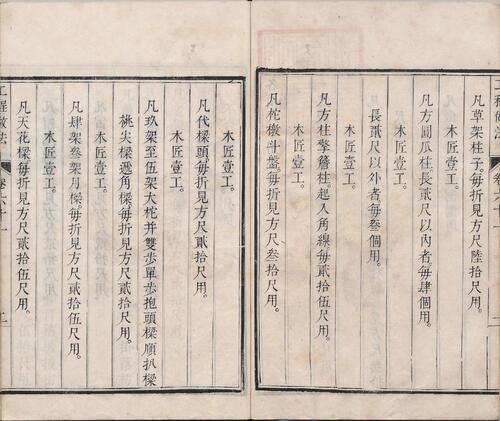 凡草架柱子每折見方尺陸拾尺用。
木匠壹工。
凡方圓瓜柱長貳尺以內者每肆個用。
長貳尺以外者每叁個用。
木匠壹工。
凡方柱擎簷柱起八角線每貳拾伍尺用。
木匠壹工。
凡柁橔斗盤每折見方尺叁拾尺用。
木匠壹工。
凡代樑頭每折見方尺貳拾尺用。
木匠壹工。
凡玖架至伍架大柁并雙步單步抱頭樑順扒樑
桃尖樑遞角樑每折見方尺貳拾伍尺用。
木匠壹工。
凡肆架叁架月樑每折見方尺貳拾伍尺用。
木匠壹工。
凡天花樑每折見方尺貳拾伍尺用。
工程做法
卷六十一
二